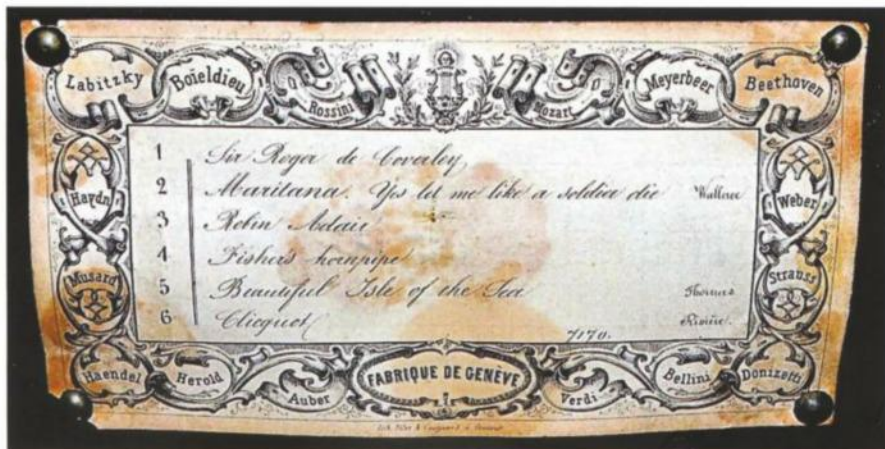 Labitzky Boïeldieu Rossini Mozart Meyerbeer Beethoven
Haydn Weber
Musard Strauss
1 Sir Roger de Coverley
2 Maritana. Yes let me like a soldier die Wallace
3 Robin Adair
4 Fishers hornpipe
5 Beautiful Isle of the Sea Thomas
6 Clicquot Rivière.
7170.
Haendel Herold Auber FABRIQUE DE GENÈVE Verdi Bellini Donizetti